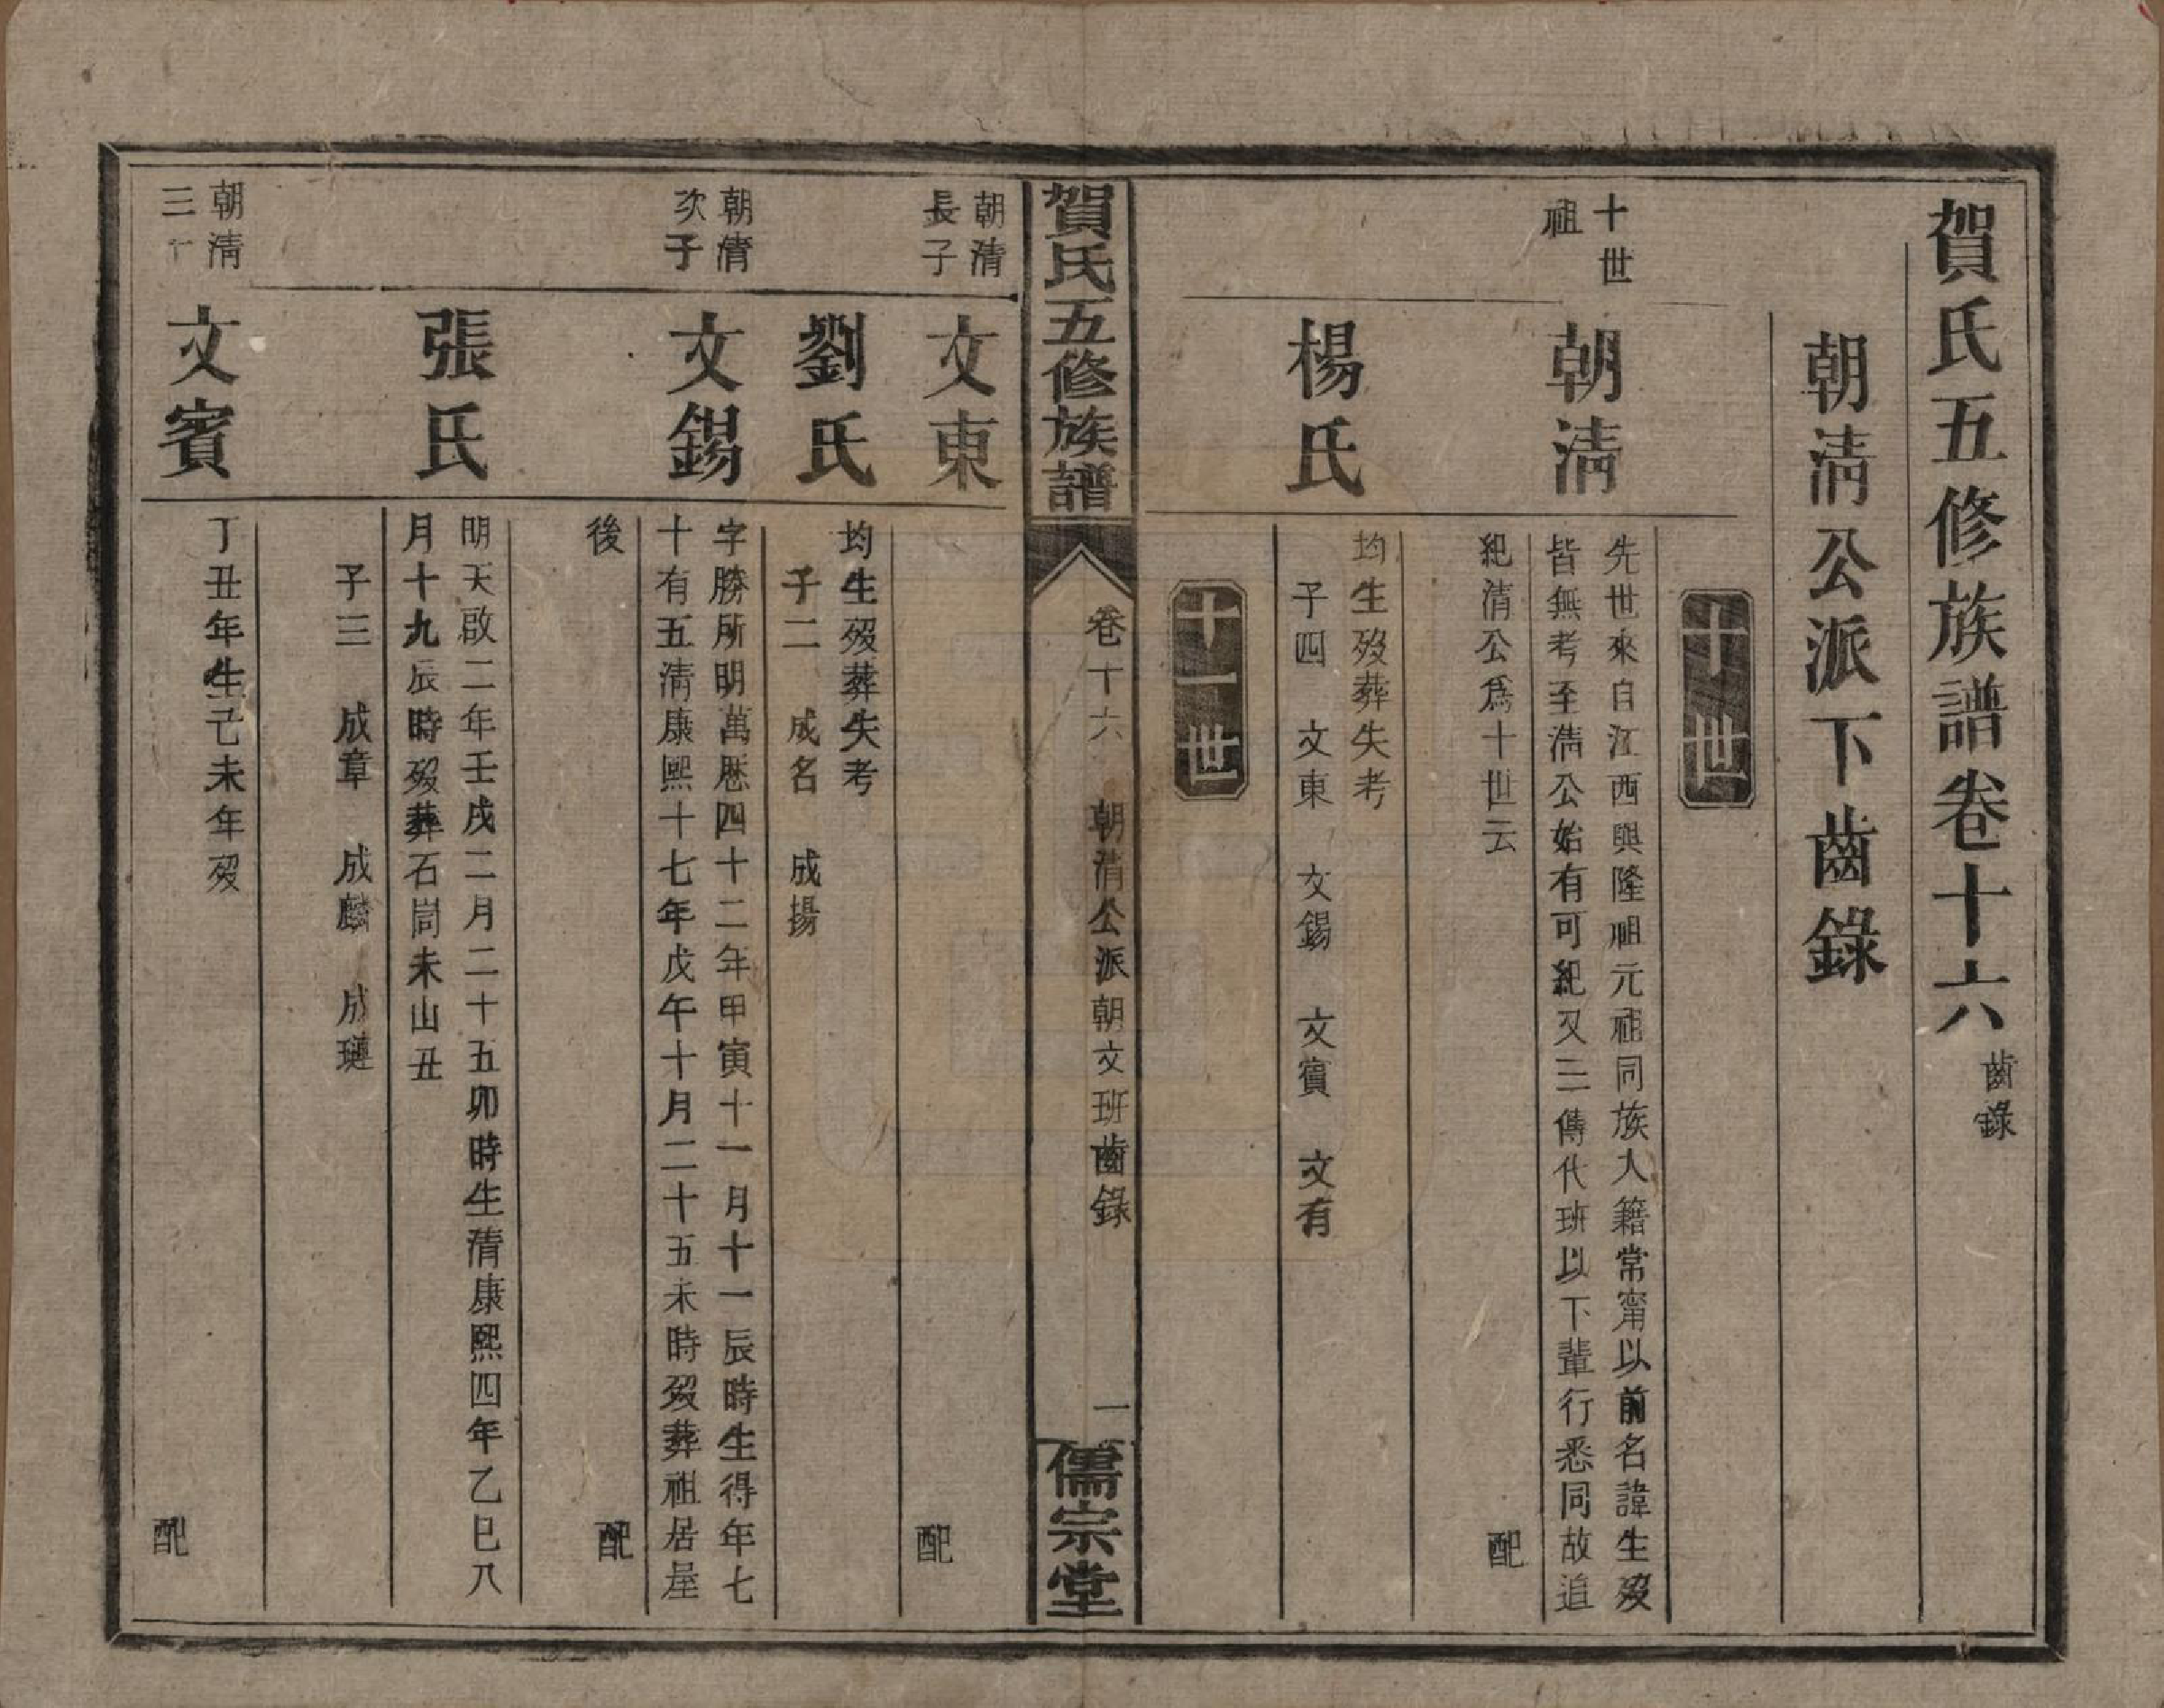 賀氏五修族譜卷十六 齒錄
朝清公派下齒錄
十世
十世
祖
朝清
先世來自江西興隆祖元祖同族人籍常甯以前名諱生歿
皆無考至清公始有可紀又二傳代班以下輩行悉同故追
紀清公爲十世云 配
楊氏
均生歿葬失考
子四 文東 文錫 文賓 文有
十一世
賀氏五修族譜
卷十六 朝清公派朝文班齒錄 一
儒宗堂
朝清
長子
文東
配
劉氏
均生歿葬失考
子二 成名 成揚
朝清
次子
文錫
字勝所明萬厯四十二年甲寅十一月十一辰時生得年七
十有五清康熙十七年戊午十月二十五未時歿葬祖居屋
後 配
張氏
明天啟二年壬戌二月二十五卯時生清康熙四年乙巳八
月十九辰時歿葬石峝未山丑
子三 成章 成麟 成璉
朝清
三
文賓
丁丑年生己未年歿
配